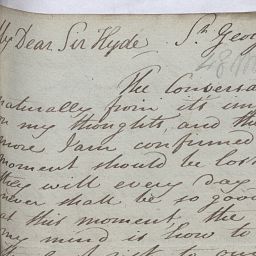 My Dear Sir Hyde, St. Georg
The Conversa
naturally from its im
on my thoughts, and the
more I am confirmed
moment should be lost
they will every day
never shall be so good
at this moment, the
my mind is how to